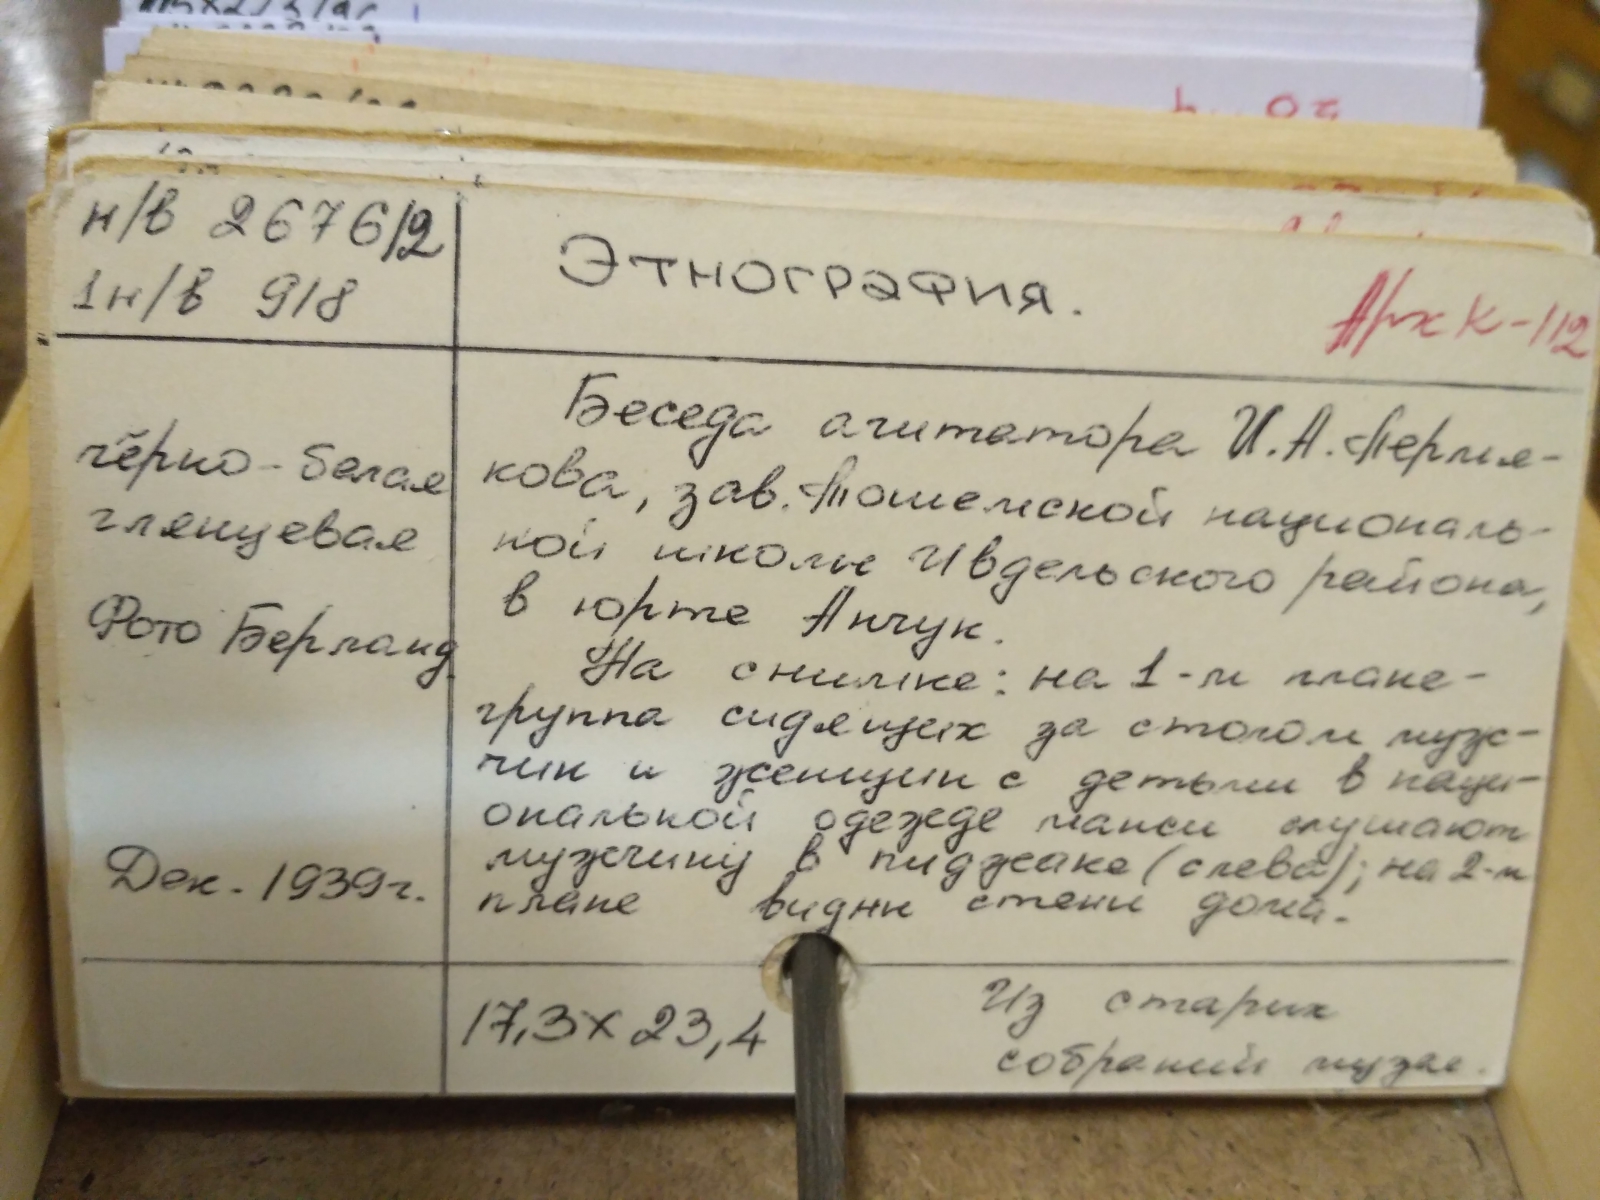 н/в 2676/2
1н/в 918
Этнография.
АрхК-112
чёрно-белая
глянцевая
Фото Берланд
Дек. 1939г.
Беседа агитатора И.А. Пермя-
кова, зав. Тошемской националь-
ной школы Ивдельского района,
в юрте Анчук.
На снимке: на 1-м плане-
группа сидящих за столом муж-
чин и женщин с детьми в наци-
ональной одежде манси слушают
мужчину в пиджаке (слева); на 2-м
плане видны стены дома.
17,3х23,4
Из старых
собраний музея.